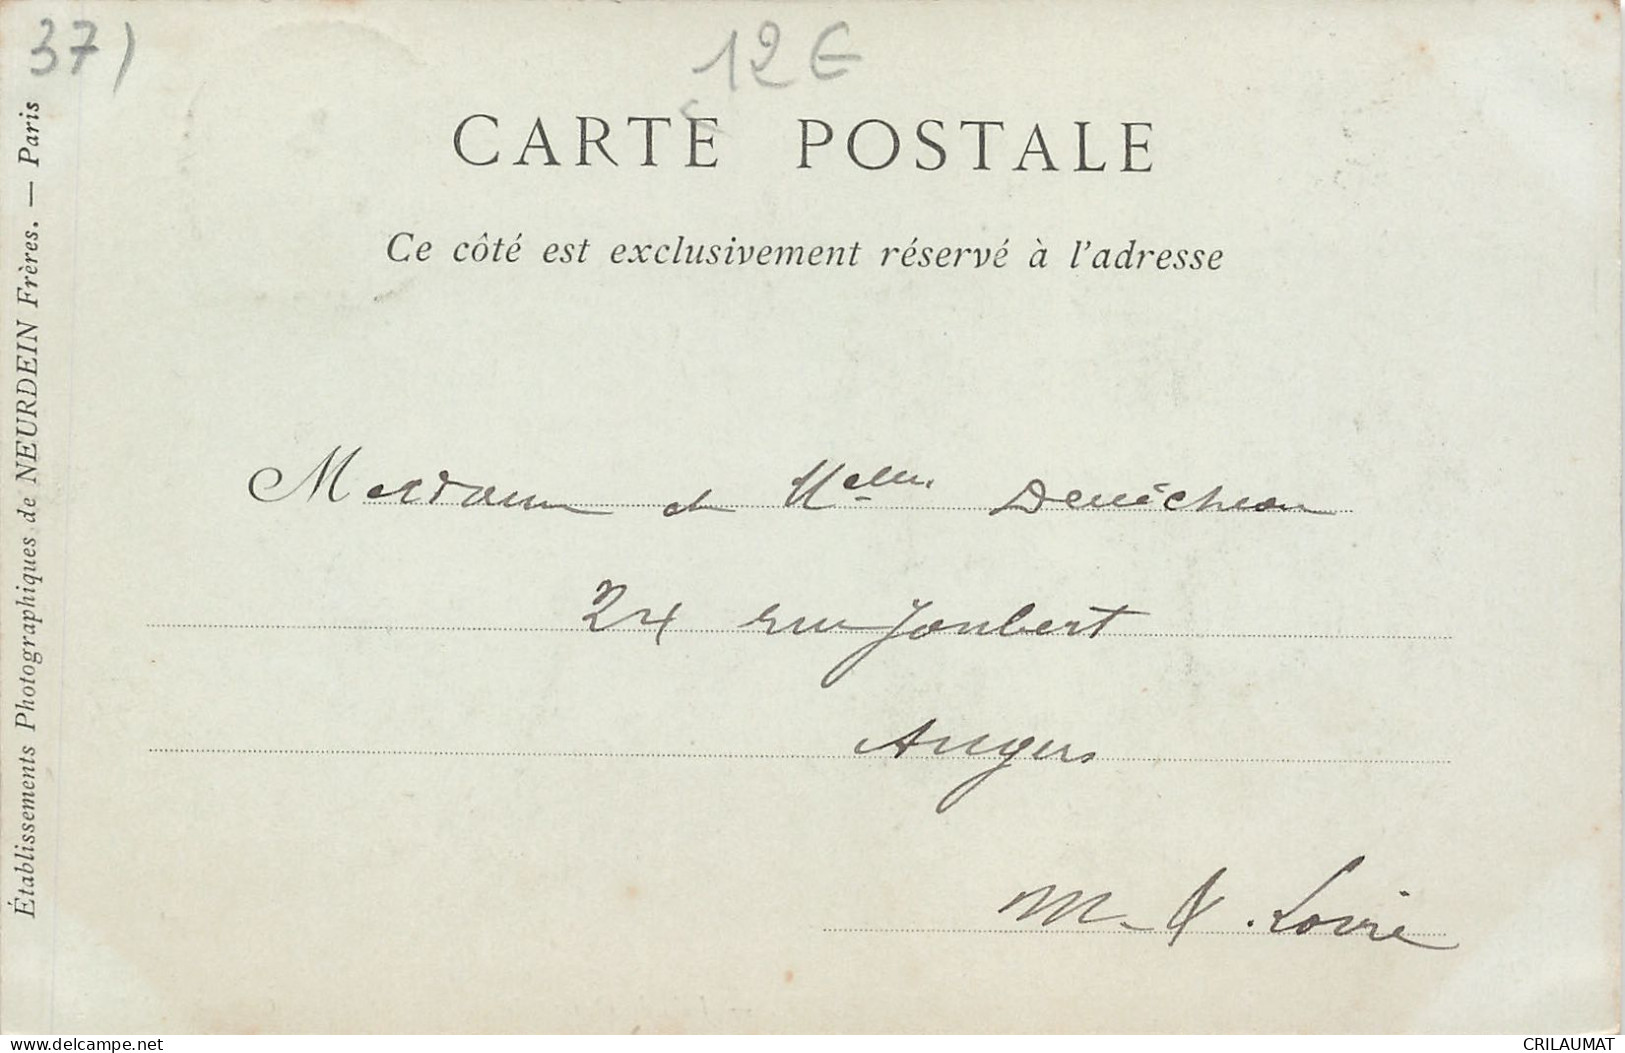 37)
12 €
CARTE POSTALE
Ce côté est exclusivement réservé à l'adresse
Établissements Photographiques de NEURDEIN Frères. — Paris
Madame et Melles Denécheau
24 rue Joubert
Angers
M. & . Loire
delcampe.net
CRILAUMAT